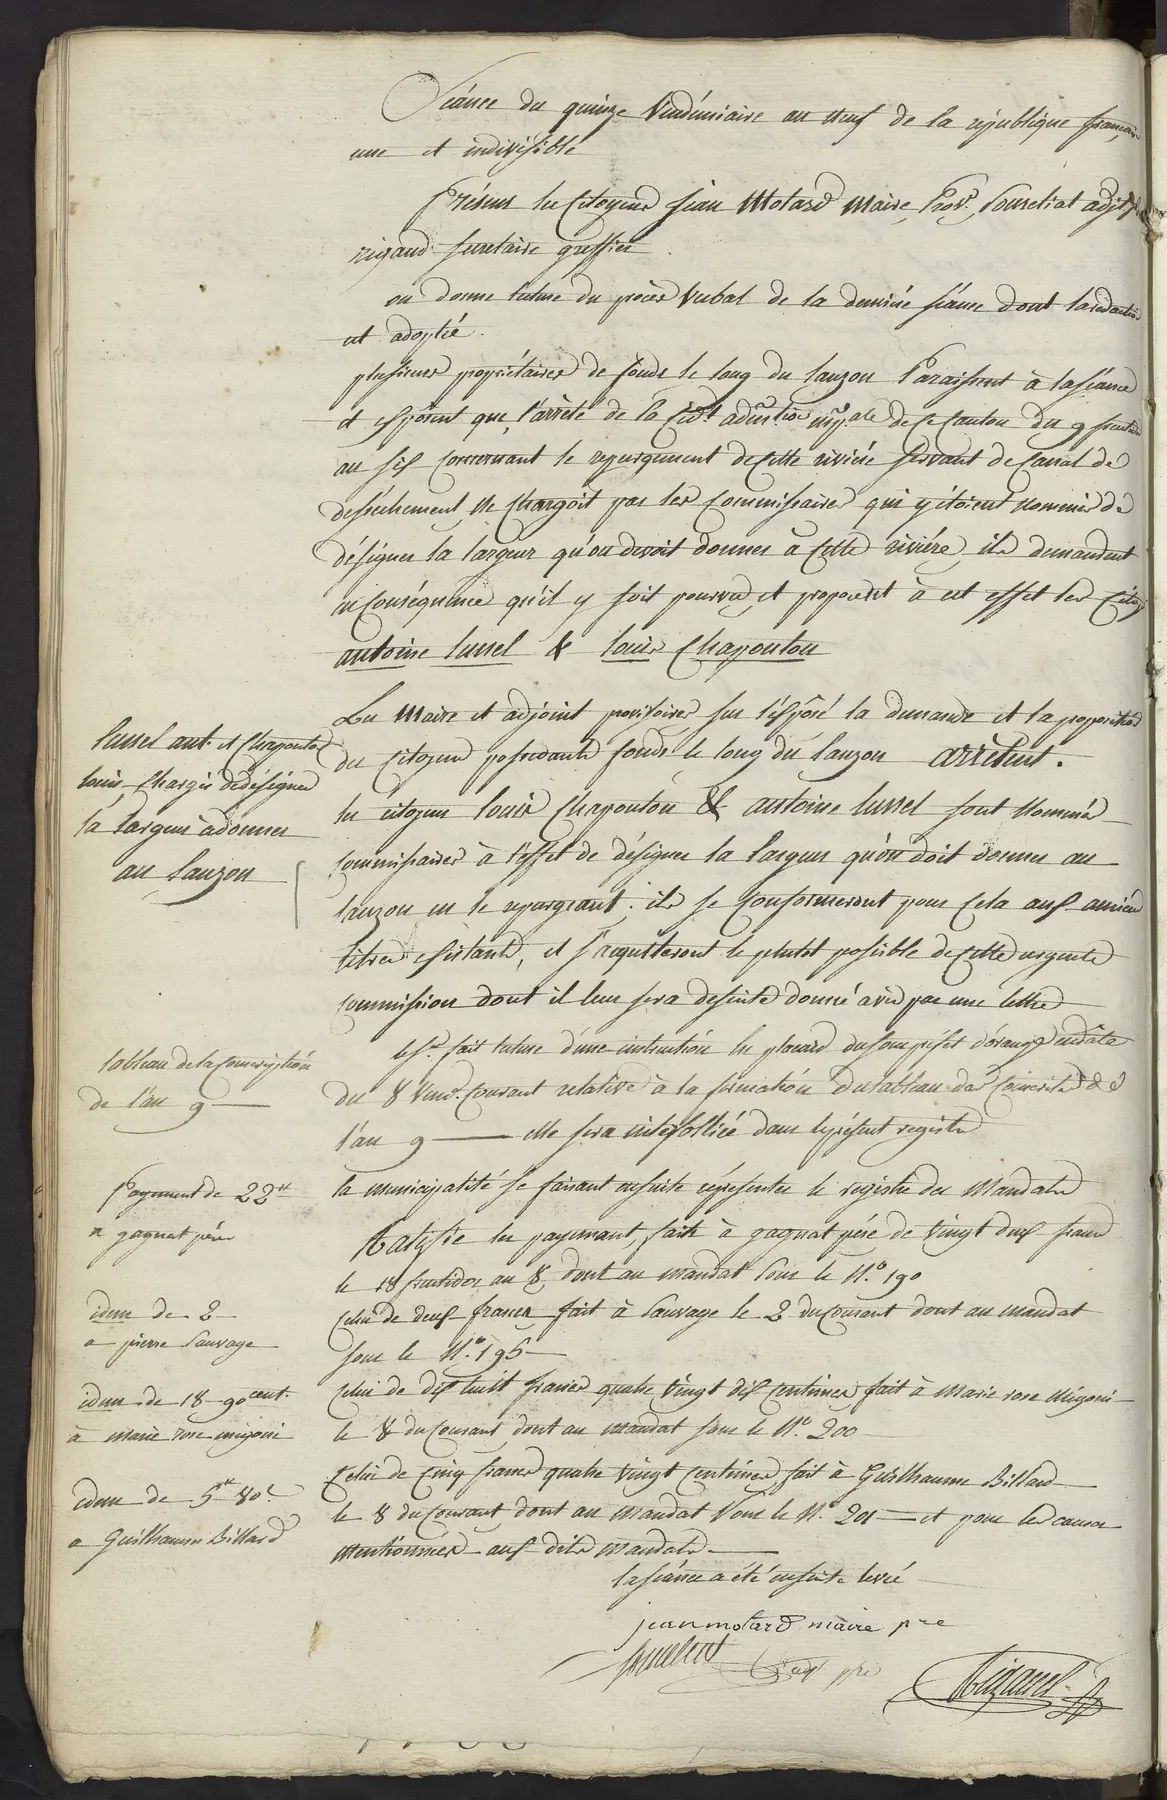 Séance du quinze Vendémiaire an neuf de la république française
une et indivisible
Présens les Citoyens jean Motard Maire, Prov.
rigaud secretaire greffier.
on donne lecture du procès verbal de la derniére séance dont la redaction
est adoptée.
plusieurs propriétaires de fonds le long du lauzon Paraissent à la séance
et exposent que l'arrété de la cidt. admtion mpale de ce Canton du 9 frucdor
an six concernant le repurgement de cette riviére servant de Canal de
desséchement ne chargoit pas les Commissaires qui y étoient nommés de
désigner la largeur qu'on devoit donner à cette riviére, ils demandent
en Conséquence qu'il y soit pourvu, et proposent à cet effet les Citoy
antoine lussel & louis Chapouton
Les Maire et adjoint provisoires sur l'exposé la demande et la proposition
des Citoyens possedants fonds le long du lauzon arrêtent.
lussel ant. et Chapouton
louis, chargés dedésigner
la largeur à donner
au lauzon
les citoyens louis Chapouton & antoine lussel sont Nommés
Commissaires à l'effet de désigner la largeur qu'on doit donner au
lauzon en le repurgeant; ils se Conformeront pour Cela aux anciens
titres existants, et s'aquitteront le plutot possible de cette urgente
commission dont il leur sera desuite donné avis par une lettre
tableau de la Conscription
de l'an 9
lesr. fait lecture d'une instruction en placard du souspréfet d'orange endâte
du 8 Vendre. Courant relative à la formation du tableau des Conscrits de
l'an 9 elle sera interfolliée dans leprésent registre
Payement de 22tt
a gagnat pére
la municipalité se faisant ensuite représenter le registre des Mandats
Ratifie les payemens, faits à gagnat pére de vingt deux francs
le 18 fructidor an 8, dont au mandat sous le N.o 190
idem de 2
a pierre Sauvage
Celui de deux francs fait à Sauvage le 2 du Courant dont au mandat
sous le N.o 195
idem de 18 90 cent.
à marie rose migoni
Celui de dix huit francs quatre vingt dix centimes, fait à Marie rose Migoni
le 8 du Courant, dont au mandat sous le N.o 200
idem de 5tt 80c.
a Guilhaume Billard
Celui de Cinq francs quatre vingt Centimes fait à Guilhaume Billard
le 8 du Courant dont au mandat sous le N.o 201 et pour les causes
Mentionnées aux dits mandats.
la séance a été ensuite levée
jean motard maire pre
adjt pre
Rigaud